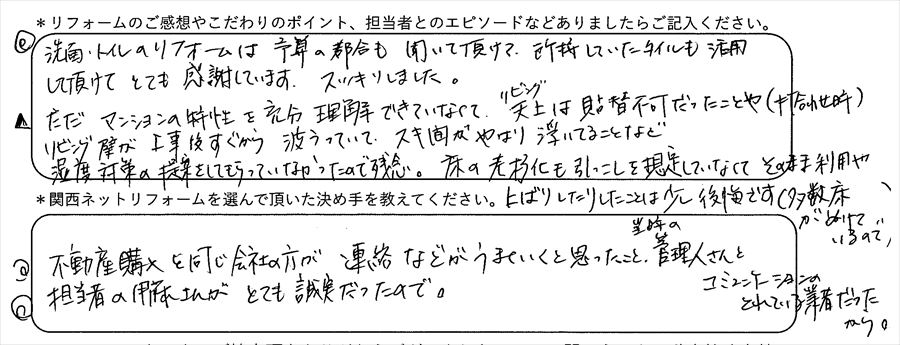 ＊リフォームのご感想やこだわりのポイント、担当者とのエピソードなどありましたらご記入ください。
洗面・トイレのリフォームは 予算の都合も 聞いて頂けて、 していたタイルも 活用
して頂けて とても 感謝しています。 スッキリしました。
ただ マンションの特性を 充分 理解 できていなくて、リビング 天上は 貼替不可だったことや(打合わせ時)
リビング 壁が 工事後すぐから 波うっていて、スキ間が やはり 浮いてることなど
湿度対策の提案をしてもらっていなかったので残念。床の老朽化も引っこしを想定していなくて そのまま利用や
＊関西ネットリフォームを選んで頂いた決め手を教えてください。
上ばりしたりしたことは少し後悔です(多数床
がぬけて
いるので、)
不動産購入を同じ会社の方が 連絡 などがうまくいくと思ったこと、当時の管理人さんと
コミュニケーションの
とれている業者だった
から。
担当者の さんが とても 誠実だったので。